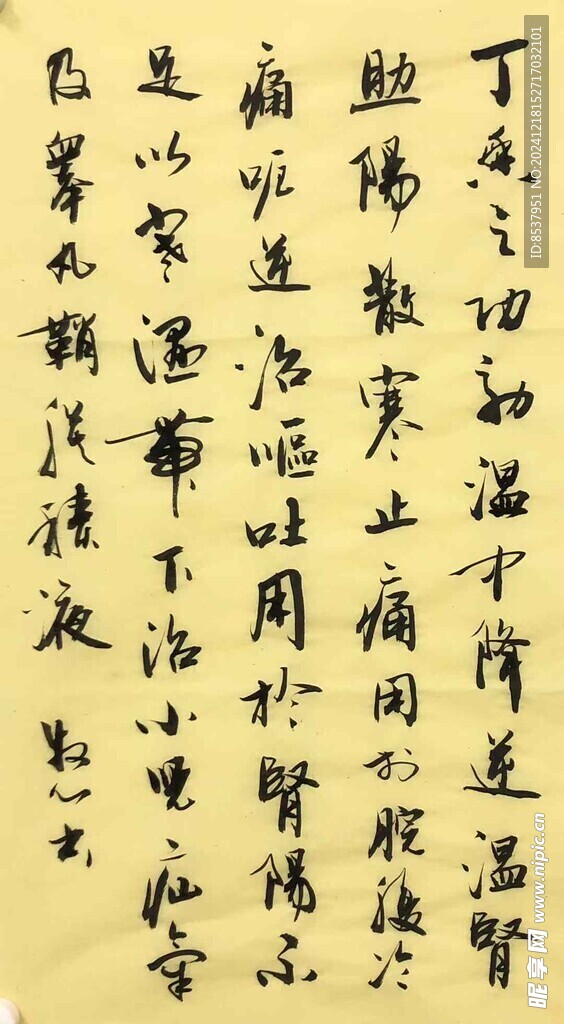 丁香之功効温中降逆温腎
助陽散寒止痛用於脘腹冷
痛呃逆治嘔吐用於腎陽不
足以寒濕帶下治小兒疝氣
及睾丸鞘膜積液 牧心书
ID:8537951 NO:20241218152717032101
昵享网 www.nipic.cn